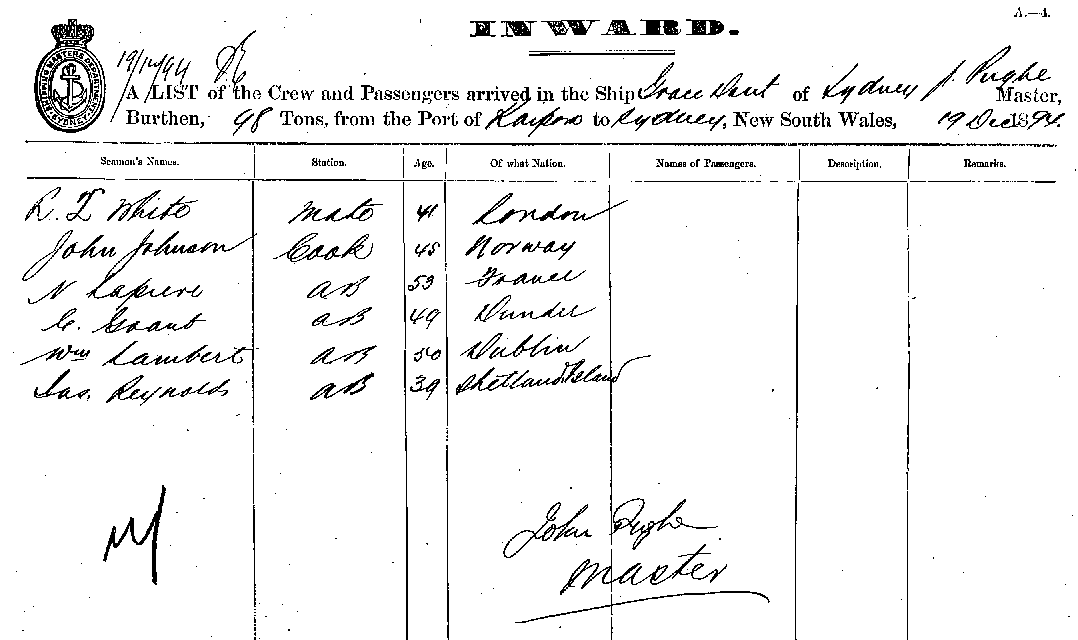 A.—4.
INWARD.
SHIPPING MASTERS DEPARTMENT SYDNEY
19/12/94
A LIST of the Crew and Passengers arrived in the Ship Grace Dent of Sydney J. Pughe Master,
Burthen, 98 Tons, from the Port of to Sydney, New South Wales, 19 Dec 1894.
Seamen's Names. Station. Age. Of what Nation. Names of Passengers. Description. Remarks.
R. T White Mate 41 London
John Johnson Cook 45 Norway
N Lapiere AB 53 France
C. Grant AB 49 Dundee
Wm Lambert AB 50 Dublin
Jas. Reynolds AB 39 Shetland Island
John Pughe
Master